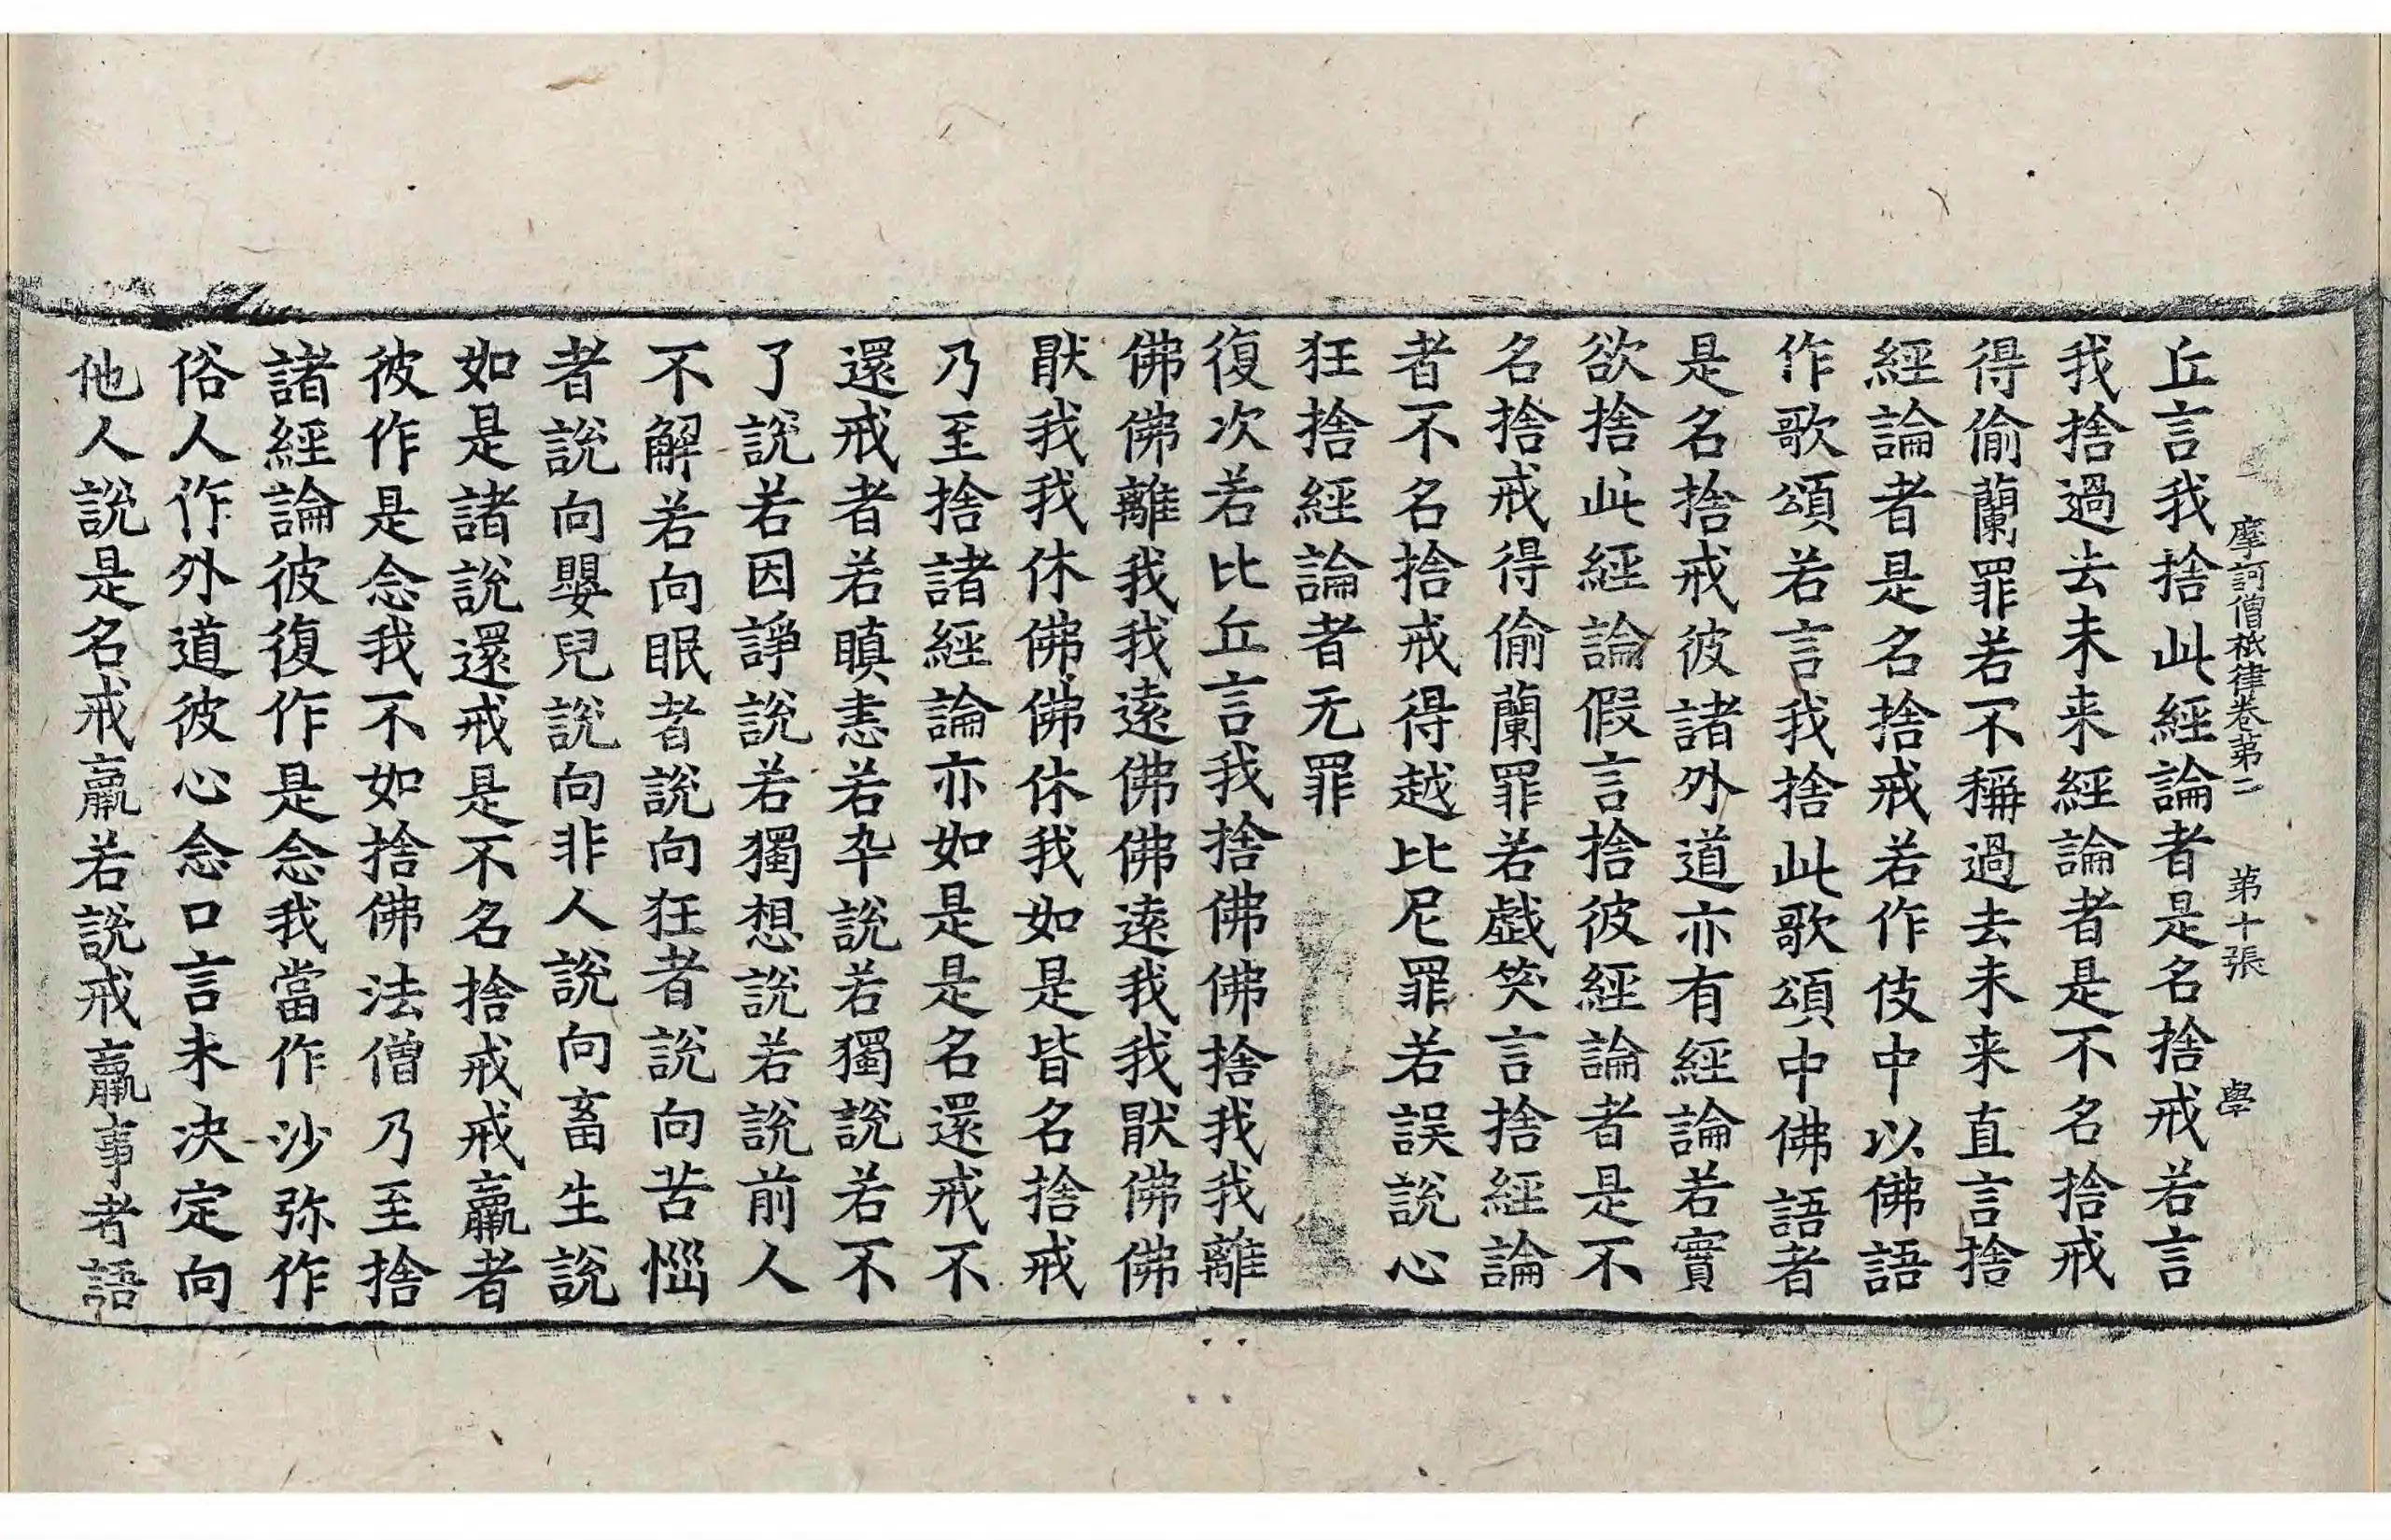 摩訶僧祇律卷苐二 苐十張 學
丘言我捨此經論者是名捨戒若言
我捨過去未来經論者是不名捨戒
得偷蘭罪若不稱過去未来直言捨
經論者是名捨戒若作伎中以佛語
作歌頌若言我捨此歌頌中佛語者
是名捨戒彼諸外道亦有經論若實
欲捨此經論假言捨彼經論者是不
名捨戒得偷蘭罪若戯笑言捨經論
者不名捨戒得越比尼罪若誤說心
狂捨經論者无罪
復次若比丘言我捨佛佛捨我我離
佛佛離我我遠佛佛遠我我猒佛佛
猒我我休佛佛休我如是皆名捨戒
乃至捨諸經論亦如是是名還戒不
還戒者若瞋恚若卒說若獨說若不
了說若因諍說若獨想說若說前人
不解若向眠者說向狂者說向苦惱
者說向嬰兒說向非人說向畜生說
如是諸說還戒是不名捨戒戒羸者
彼作是念我不如捨佛法僧乃至捨
諸經論彼復作是念我當作沙弥作
俗人作外道彼心念口言未决定向
他人說是名戒羸若說戒羸事者語